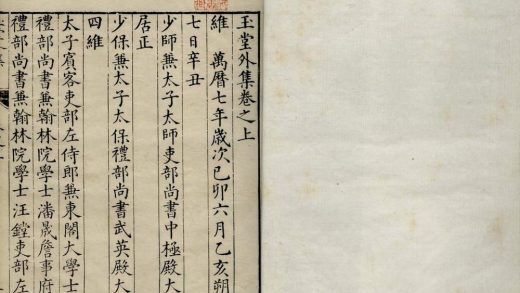 玉堂外集卷之上
維　萬曆七年歲次己卯六月乙亥朔
七日辛丑
少師兼太子太師吏部尚書中極殿大
居正
少保兼太子太保禮部尚書武英殿大
四維
太子賓客吏部左侍郎兼東閣大學士
禮部尚書兼翰林院學士潘晟詹事府
禮部尚書兼翰林院學士汪鏜吏部左